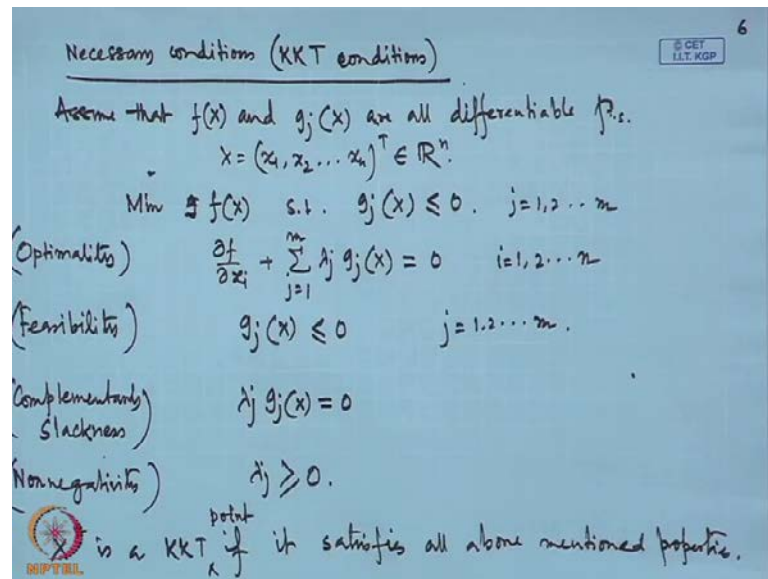 6
Necessary conditions (KKT conditions)
© CET
I.I.T. KGP
Assume that f(x) and g_j(x) are all differentiable
X = (x_1, x_2 ... x_n)^T ∈ R^n.
Min f(x) s.t. g_j(x) ≤ 0. j = 1, 2 .. m
(Optimality) ∂f/∂x_i + Σ_{j=1}^{m} λ_j g_j(x) = 0 i = 1, 2 ... n
(Feasibility) g_j(x) ≤ 0 j = 1.2 ... m.
(Complementary Slackness) λ_j g_j(x) = 0
(Nonnegativity) λ_j ≥ 0.
X is a KKT point if it satisfies all above mentioned properties.
NPTEL